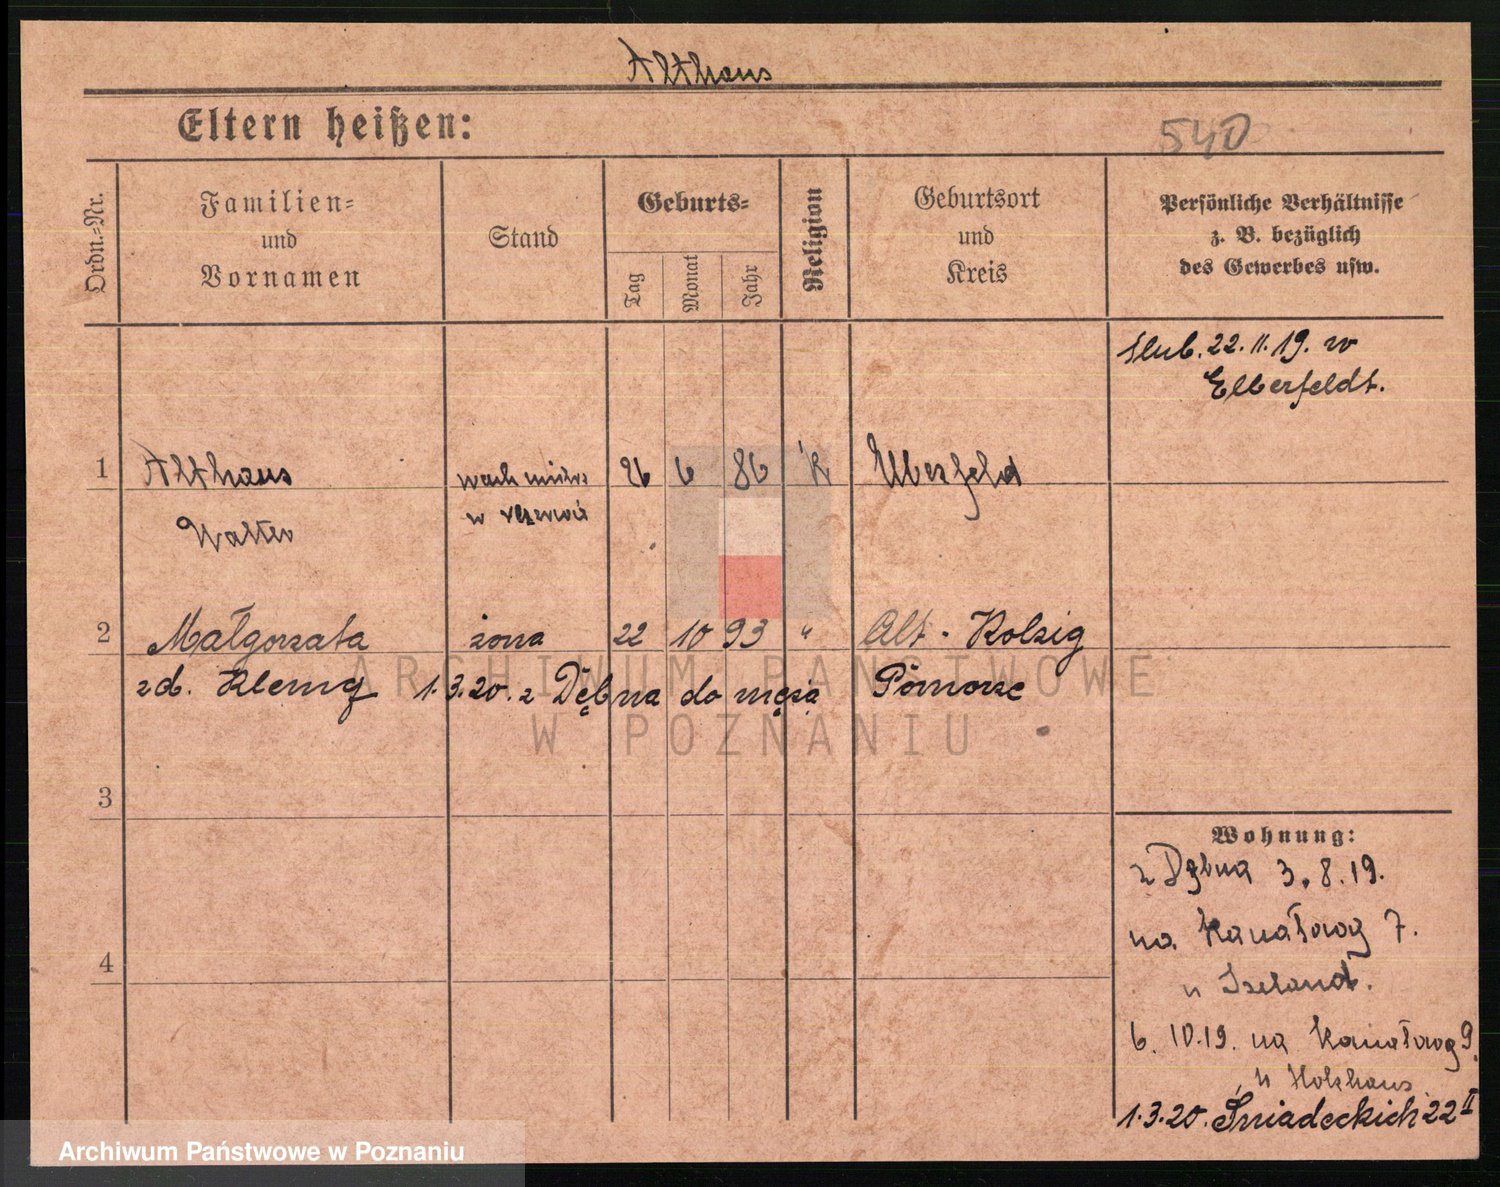 Althaus
Eltern heißen:
540
Ordn.-Nr.
Familien-
und
Vornamen
Stand
Geburts-
Tag
Monat
Jahr
Religion
Geburtsort
und
Kreis
Persönliche Verhältnisse
z. B. bezüglich
des Gewerbes usw.
ślub. 22. 11. 19. w
Elberfeldt.
1 Althaus 26 6 86 K Elberfeld
w
Walter
2 Małgorzata żona 22 10 93 " Alt - Kolzig
zd. 1.3.20. z Dębna do męża Pomorze
ARCHIWUM PAŃSTWOWE
W POZNANIU
3
Wohnung:
z Dębna 3. 8. 19.
na 7.
u
4
6. 10. 19. na 9.
u Holzhaus
1.3.20. Śniadeckich 22 II
Archiwum Państwowe w Poznaniu